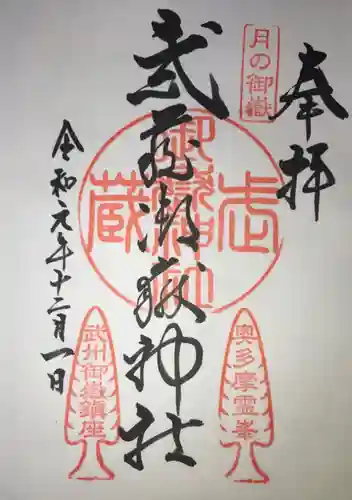 奉拝
月の御嶽
武蔵御嶽神社
武蔵御嶽神社
奥多摩霊峯
武州御嶽鎮座
令和元年十二月一日